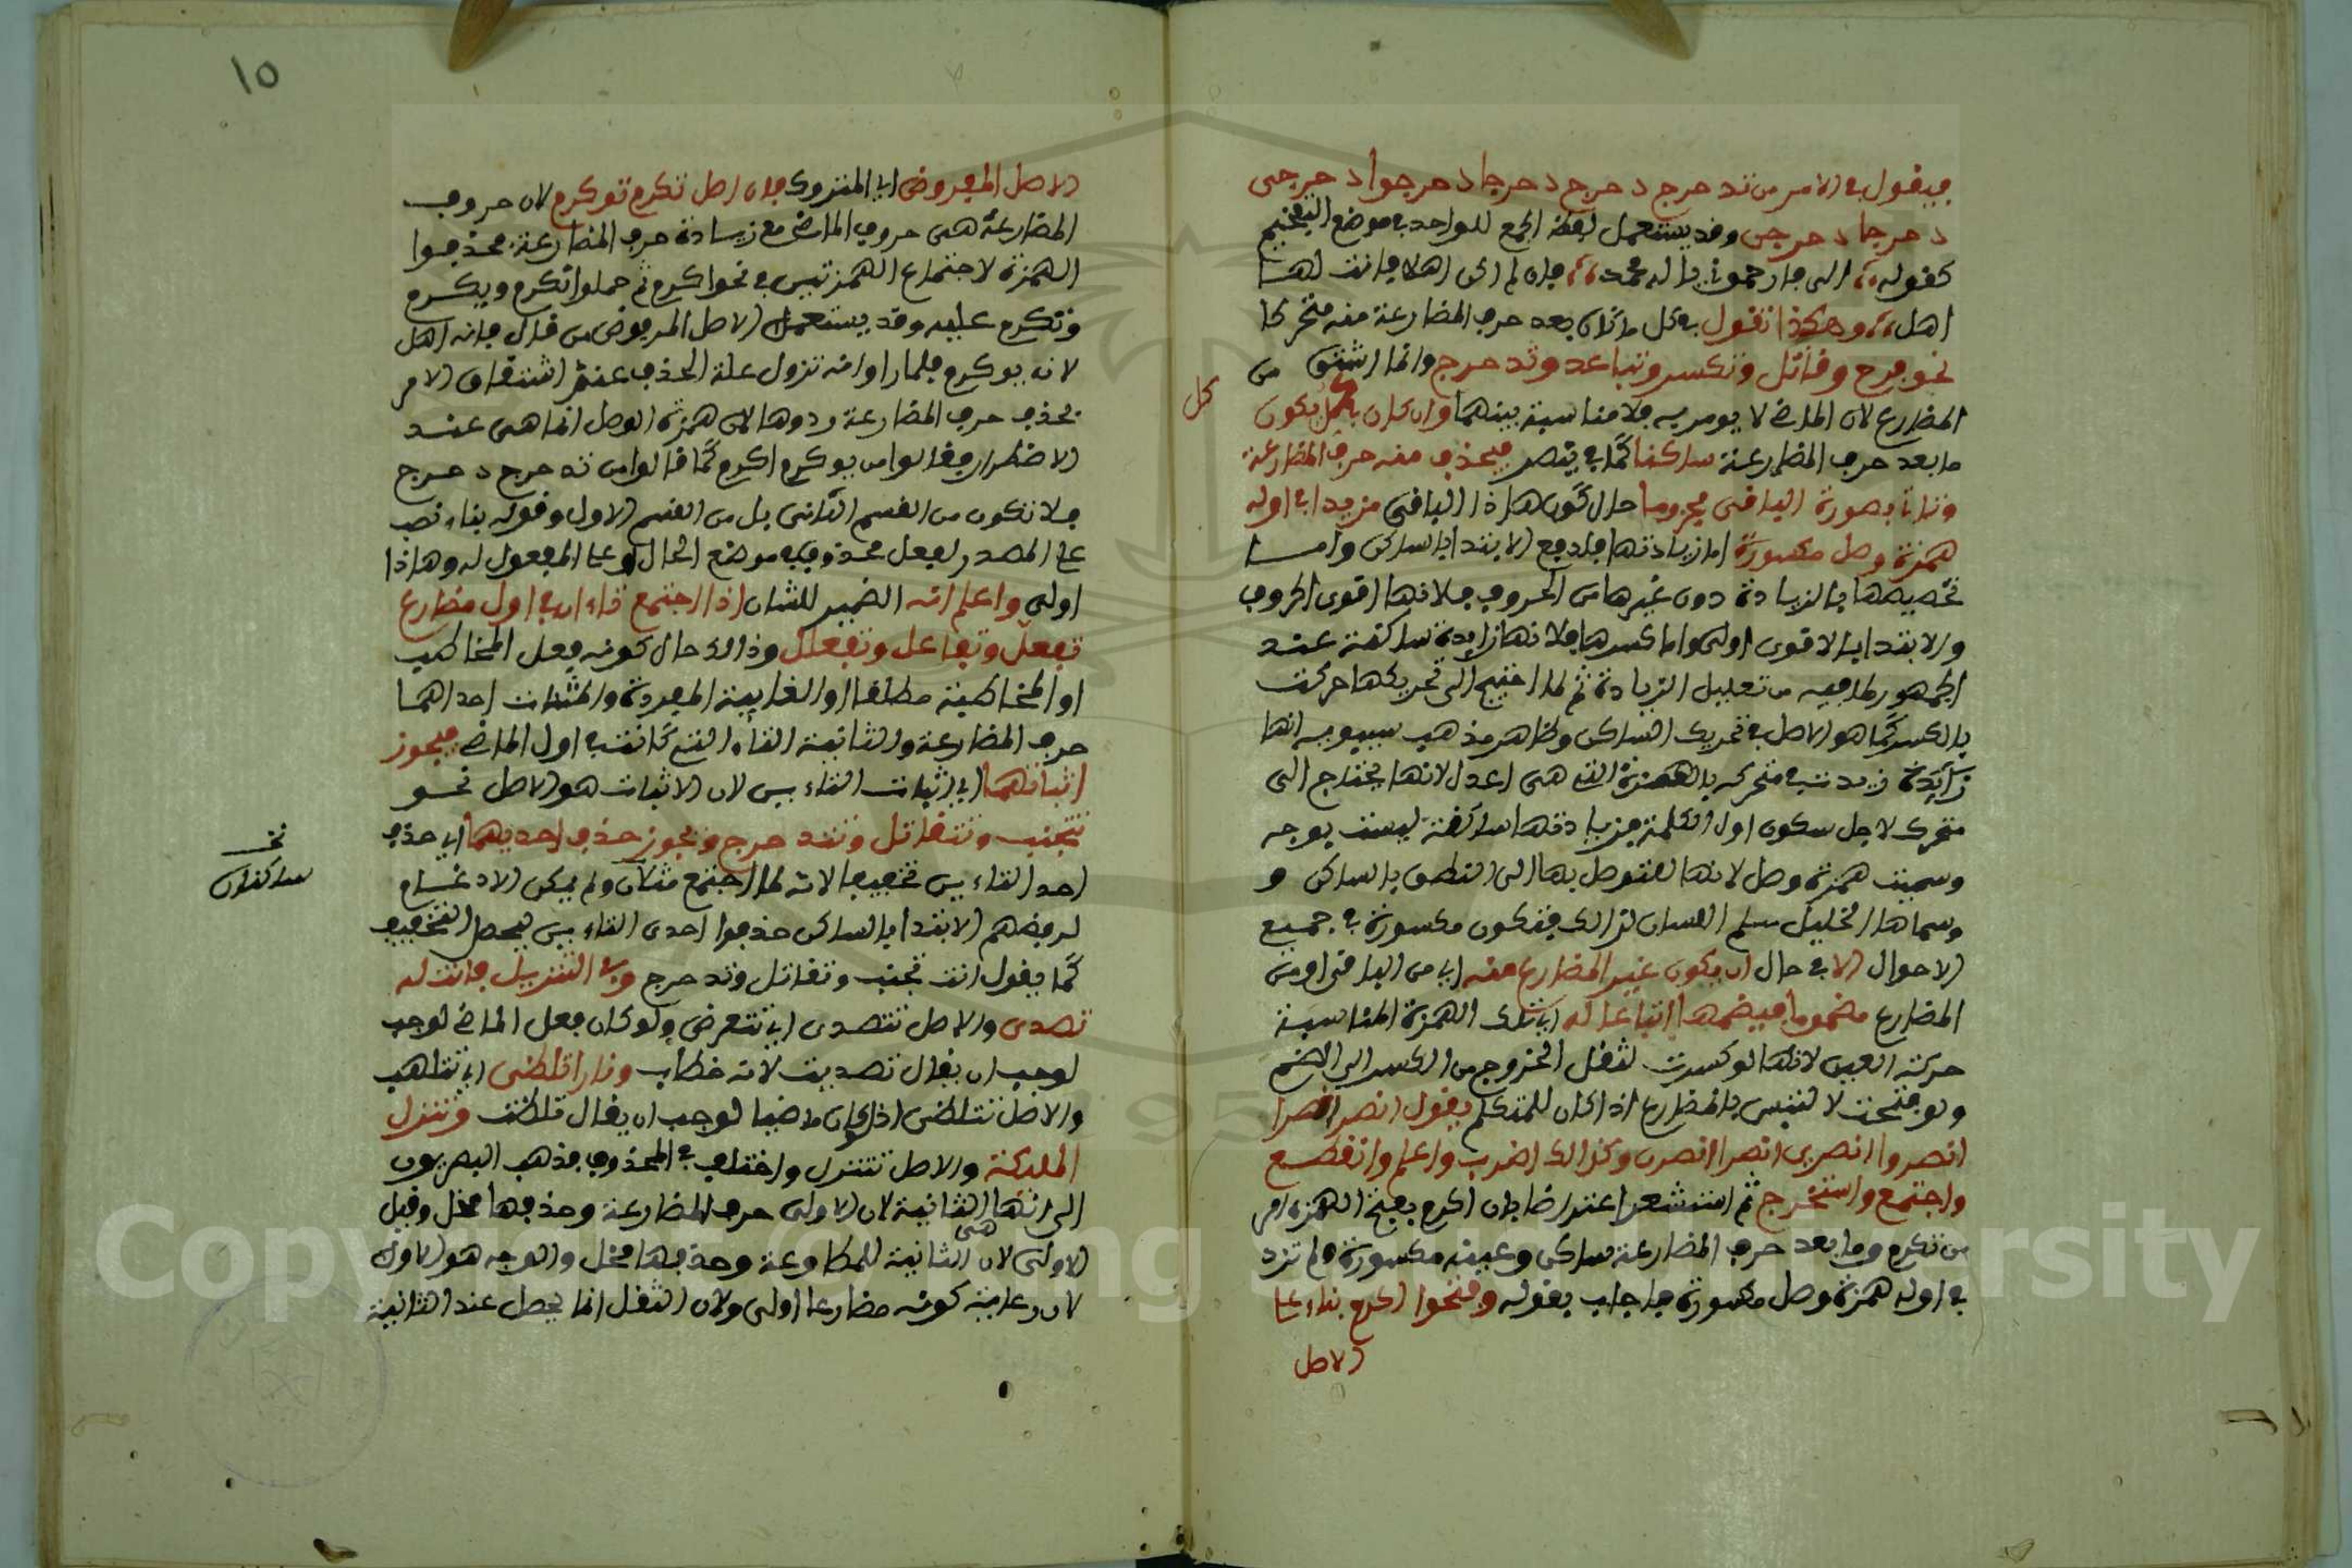 فيقول في الامر من تدحرج دحرج دحرجا دحرجوا دحرجى
دحرجا دحرجن وقد يستعمل لفظ الجمع للواحد في موضع التفخيم
كقوله الى فارحمونى يا اله محمد فان لم اكن اهلا فانت لها
اهل وهكذا تقول في كل ما كان بعد حرف المضارعة منه متحركا
نحو فرح وقاتل وتكسر وتباعد وتدحرج وانما اشتق من
المضارع لان الماضى لا يومر به فلا مناسبة بينهما وان كان يكون
كل
ما بعد حرف المضارعة ساكنا كما في ينصر فيحذف منه حرف المضارعة
وتاتى بصورة الباقى مجزوما حال كون هاذا الباقى مزيدا في اوله
همزة وصل مكسورة اما زيادتها فلدفع الابتدا بالساكن واما
تخصيصها بالزيادة دون غيرها من الحروف فلانها اقوى الحروف
والابتدا بالاقوى اولى واما كسرها فلانها زايدة ساكنة عند
الجمهور لما فيه من تعليل الزيادة ثم لما احتيج الى تحريكها حركت
بالكسر كما هو الاصل في تحريك الساكن وظاهر مذهب سيبويه انها
زايدة زيدت متحركه بالكسرة التى هى اعدل لانها يحتاج الى
متحرك لاجل سكون اول الكلمة فزيادتها ساكنة ليست بوجه
وسميت همزة وصل لانها لتوصل بها الى النطق بالساكن و
وسماها الخليل سلم اللسان لذالك فتكون مكسورة في جميع
الاحوال الا في حال ان يكون عين المضارع منه اي من الباقى او من
المضارع مضموما فيضمها اتباعا له اي تلك الهمزة المناسبة
حركة العين لانها لو كسرت لثقل الخروج من الكسر الى الضم
ولو فتحت لالتبس بالمضارع اذا كان للمتكلم يقول انصر انصرا
انصروا انصرى انصرا انصرن وكذالك اضرب واعلم وانقطع
واجتمع واستخرج ثم استشعر اعتراضا بان اكرم بفتح الهمزة امر
من تكرم وما بعد حرف المضارعة ساكن وعينه مكسورة ولم تزد
في اوله همزة وصل مكسورة فاجاب بقوله وفتحوا اكرم بناء على
الاصل
١٥
الاصل المفروض اي المتروك فان اصل تكرم توكرم لان حروف
المضارعة هى حروف الماضى مع زيادة حرف المضارعة فحذفوا
الهمزة لاجتماع الهمزتين في نحو اكرم ثم حملوا تكرم ويكرم
ونكرم عليه وقد يستعمل الاصل المرفوض من قال فانه اهل
لان يوكرم فلما راوا انه تزول علة الحذف عند اشتقاق الامر
بحذف حرف المضارعة ردوها لان همزة الوصل انما هى عند
الاضطرار فقالوا من يوكرم اكرم كما قالوا من تدحرج دحرج
فلا تكون من القسم الثانى بل من القسم الاول وقوله بناء نصب
على المصدر لفعل محذوف في موضع الحال او على المفعول له وهاذا
اولى واعلم انه الضمير للشان اذا اجتمع تاءان في اول مضارع
تفعل وتفاعل وتفعلل وذالك حال كونه فعل المخاطب
او المخاطبة مطلقا او الغايبة المفردة والمثنات احداهما
حرف المضارعة والثانية التاء التى كانت في اول الماضى فيجوز
اثباتهما اي اثبات التاءين لان الاثبات هو الاصل نحو
تتجنب وتتقاتل وتتدحرج ويجوز حذف احديهما اي حذف
احد التاءين تخفيفا لانه لما اجتمع مثلان ولم يمكن الادغام
نخ
ساكنان
لرفضهم الابتدا بالساكن حذفوا احدى التاءين ليحصل التخفيف
كما يقول انت تجنب وتقاتل وتدحرج وفي التنزيل فانت له
تصدى والاصل تتصدى اي تتعرض ولو كان فعل الماضى لوجب
لوجب ان يقال تصديت لانه خطاب ونارا تلظى اي تتلهب
والاصل تتلظى اذ لو كان ماضيا لوجب ان يقال تلظت وتنزل
الملئكة والاصل تتنزل واختلف في المحذوف فذهب البصريون
الى انها الثانية لان الاولى حرف المضارعة وحذفها مخل وقيل
الاولى لان الثانية هى للمطاوعة وحذفها مخل والوجه هو الاول
لان رعاية كونه مضارعا اولى ولان الثقل انما يحصل عند الثانية
Copyright © King Saud University